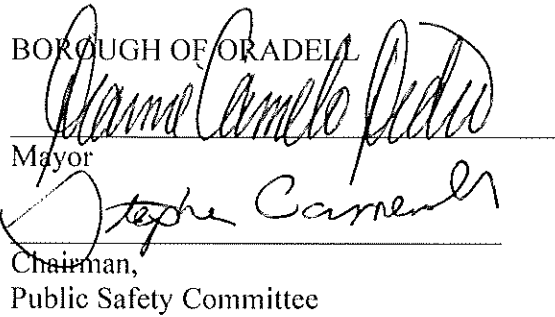 BOROUGH OF ORADELL
Dianne Camelo Didio
Mayor
Stephen
Chairman,
Public Safety Committee